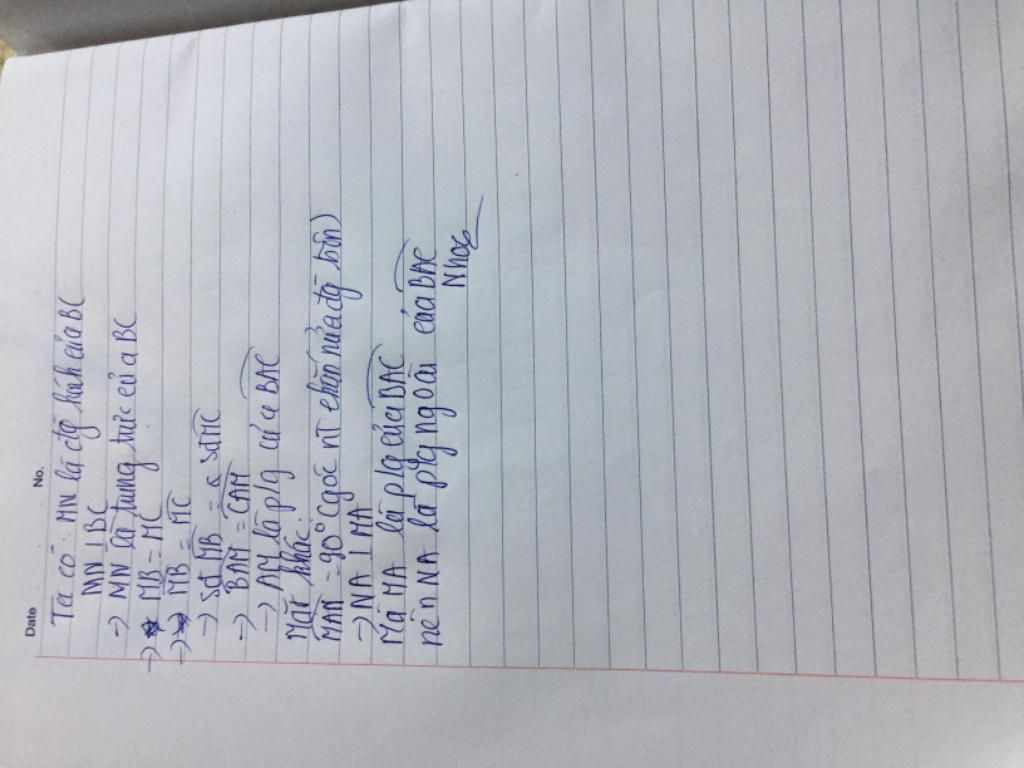 Date No.
Ta có: MN là đg kính của BC
MN ⊥ BC
→ MN là trung trực của BC
→ MB = MC
→ MB = MC
→ Sđ MB = Sđ MC
→ BAM = CAM
→ AM là p/g của BAC
Mặt khác:
MAN = 90° (góc nt chắn nửa đg tròn)
→ NA ⊥ MA
Mà MA là p/g của BAC
nên NA là p/g ngoài của BAC